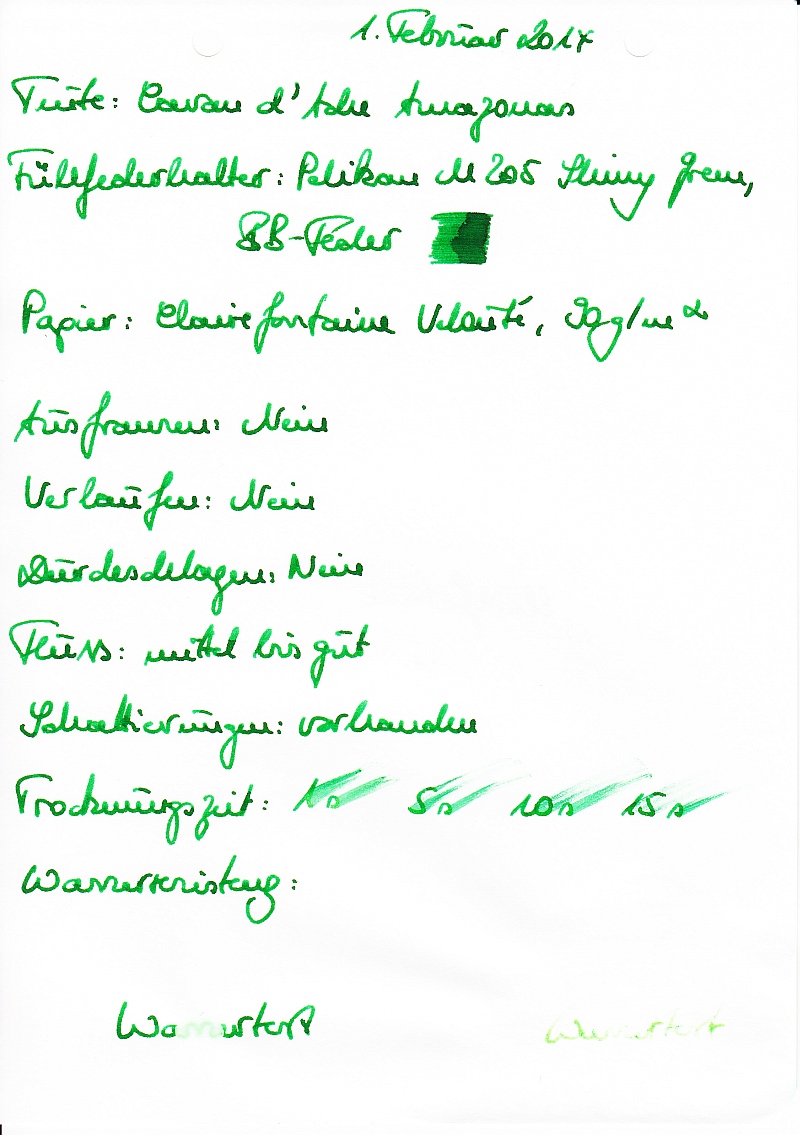 1. Februar 2017
Tinte: Caran d'Ache Amazonas
Füllfederhalter: Pelikan M205 Shiny Green,
BB-Feder
Papier: Clairefontaine Velouté, 90g/m²
Ausfransen: Nein
Verlaufen: Nein
Durchschlagen: Nein
Fluss: mittel bis gut
Schattierungen: vorhanden
Trocknungszeit: 1s 5s 10s 15s
Wasserresistenz:
Wassertest Wassertest